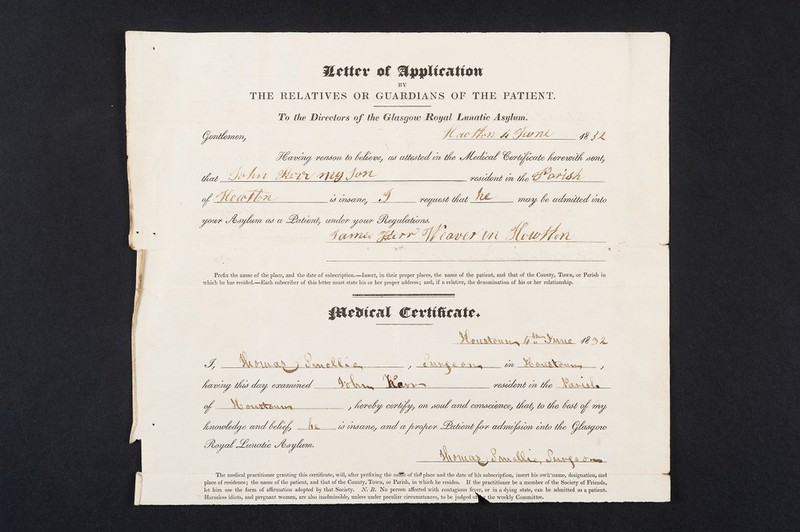 Letter of Application
BY
THE RELATIVES OR GUARDIANS OF THE PATIENT.
To the Directors of the Glasgow Royal Lunatic Asylum.
Gentlemen, Howtton 4 June 1832
Having reason to believe, as attested in the Medical Certificate herewith sent,
that John Kerr my Son resident in the Parish
of Howtton is insane, I request that he may be admitted into
your Asylum as a Patient, under your Regulations.
James Kerr Weaver in Howtton
Prefix the name of the place, and the date of subscription.—Insert, in their proper places, the name of the patient, and that of the County, Town, or Parish in
which he has resided.—Each subscriber of this letter must state his or her proper address; and, if a relative, the denomination of his or her relationship.
Medical Certificate.
Houstoun, 4th June 1832
I, Thomas Smellie, Surgeon, in Houstoun,
having this day examined John Kerr resident in the Parish
of Houstoun, hereby certify, on soul and conscience, that, to the best of my
knowledge and belief, he is insane, and a proper Patient for admission into the Glasgow
Royal Lunatic Asylum.
Thomas Smellie, Surgeon
The medical practitioner granting this certificate, will, after prefixing the name of the place and the date of his subscription, insert his own name, designation, and
place of residence; the name of the patient, and that of the County, Town, or Parish, in which he resides. If the practitioner be a member of the Society of Friends,
let him use the form of affirmation adopted by that Society. N. B. No person affected with contagious fever, or in a dying state, can be admitted as a patient.
Harmless idiots, and pregnant women, are also inadmissible, unless under peculiar circumstances, to be judged of by the weekly Committee.